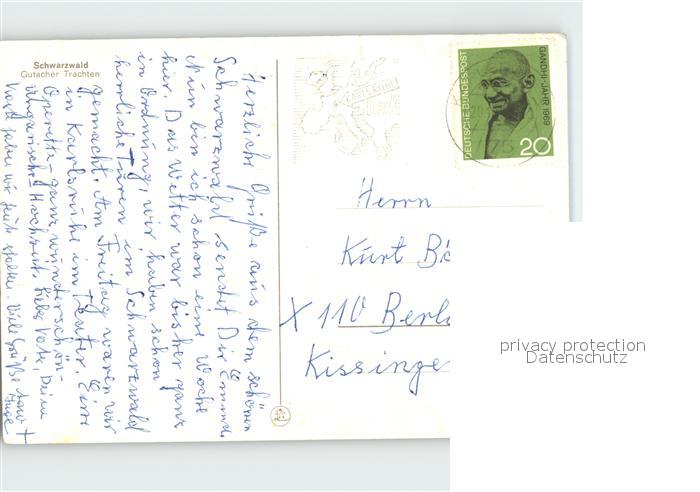 Schwarzwald
Gutacher Trachten
Herzliche Grüße aus dem schönen
Schwarzwald sendet Dir Emma.
Nun bin ich schon eine Woche
hier. Das Wetter war bisher ganz
in Ordnung, wir haben schon
herrliche Turen im Schwarzwald
gemacht. Am Freitag waren wir
in Karlsruhe im Teater. Eine
Operette - ganz wunderschön -
ungarische Hochzeit. lieber Vater, Deine
Viele Grüße
KARLSRUHE
DEUTSCHE BUNDESPOST
GANDHI-JAHR 1969
20
75
Herrn
Kurt Bö
X 110 Berl
Kissinge
privacy protection
Datenschutz